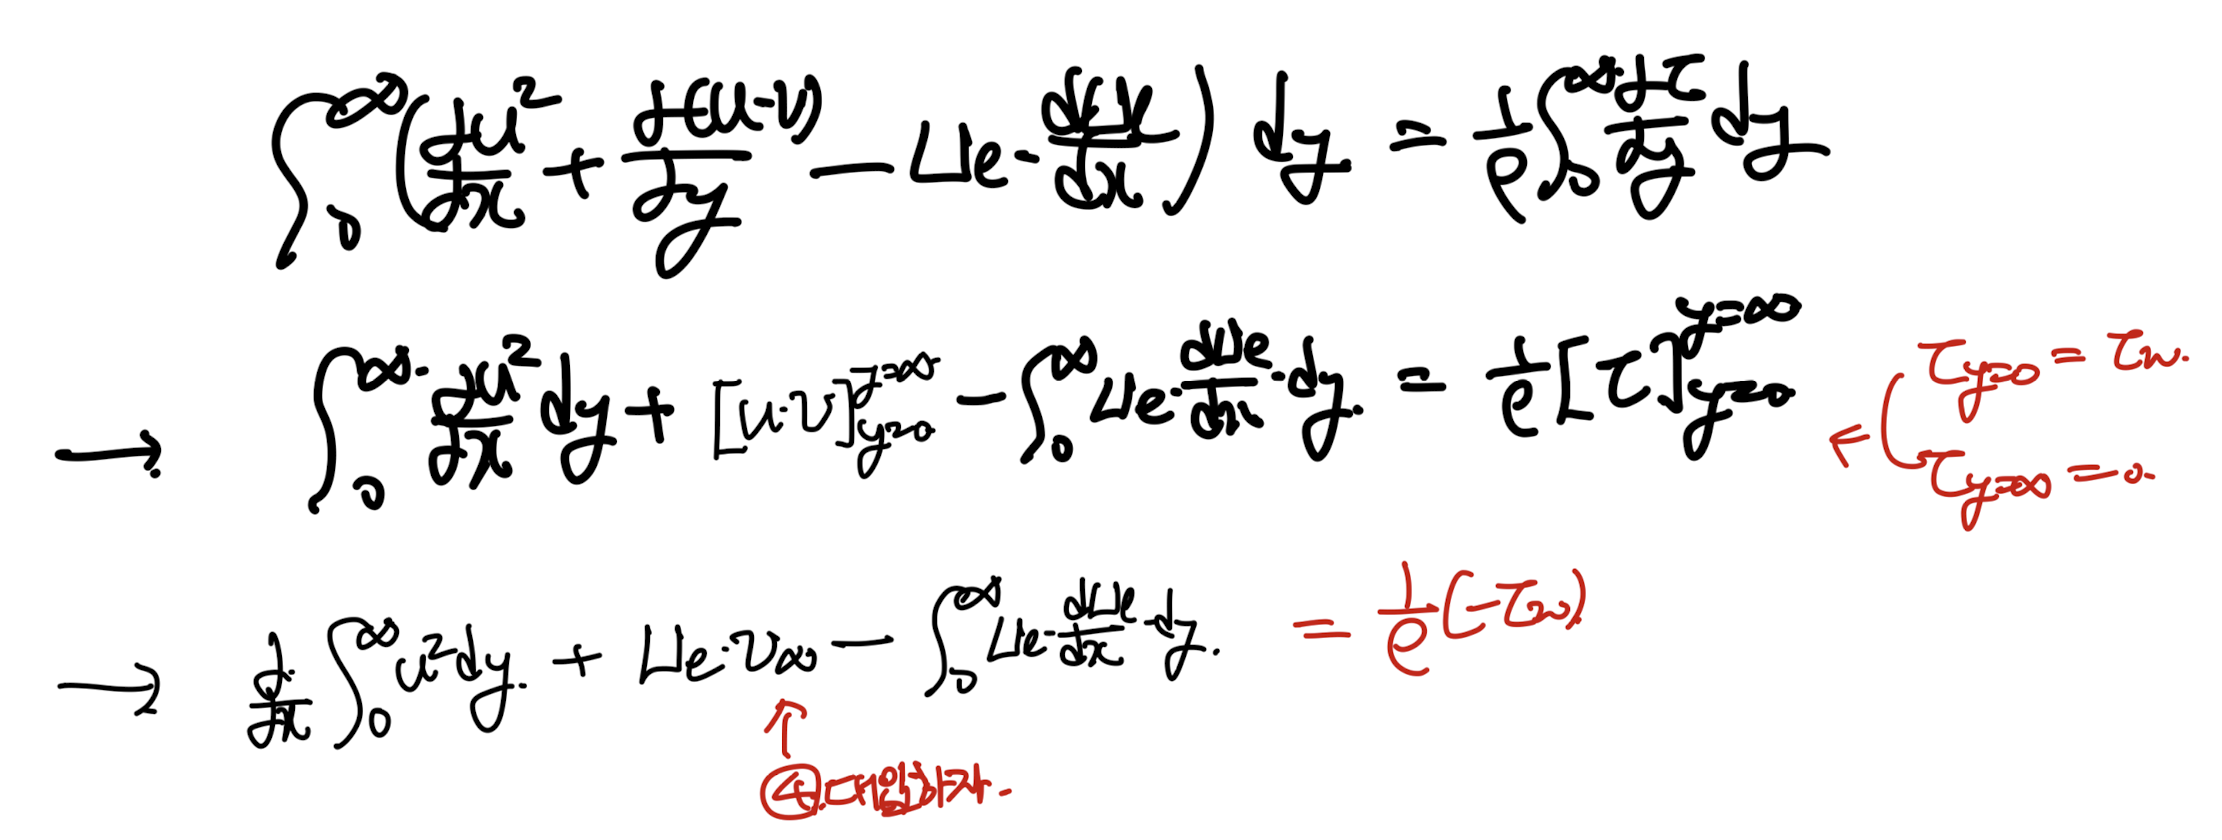 ∫₀^∞ (∂u²/∂x + ∂(u·v)/∂y − Ue·dUe/dx) dy = 1/ρ ∫₀^∞ ∂τ/∂y dy
→ ∫₀^∞ ∂u²/∂x dy + [u·v]_{y=0}^{y=∞} − ∫₀^∞ Ue·dUe/dx·dy = 1/ρ [τ]_{y=0}^{y=∞}
← τ_{y=0} = τw.
τ_{y=∞} = 0.
→ ∂/∂x ∫₀^∞ u²dy + Ue·v∞ − ∫₀^∞ Ue·dUe/dx·dy. = 1/ρ (−τw)
↑
④.대입하자.